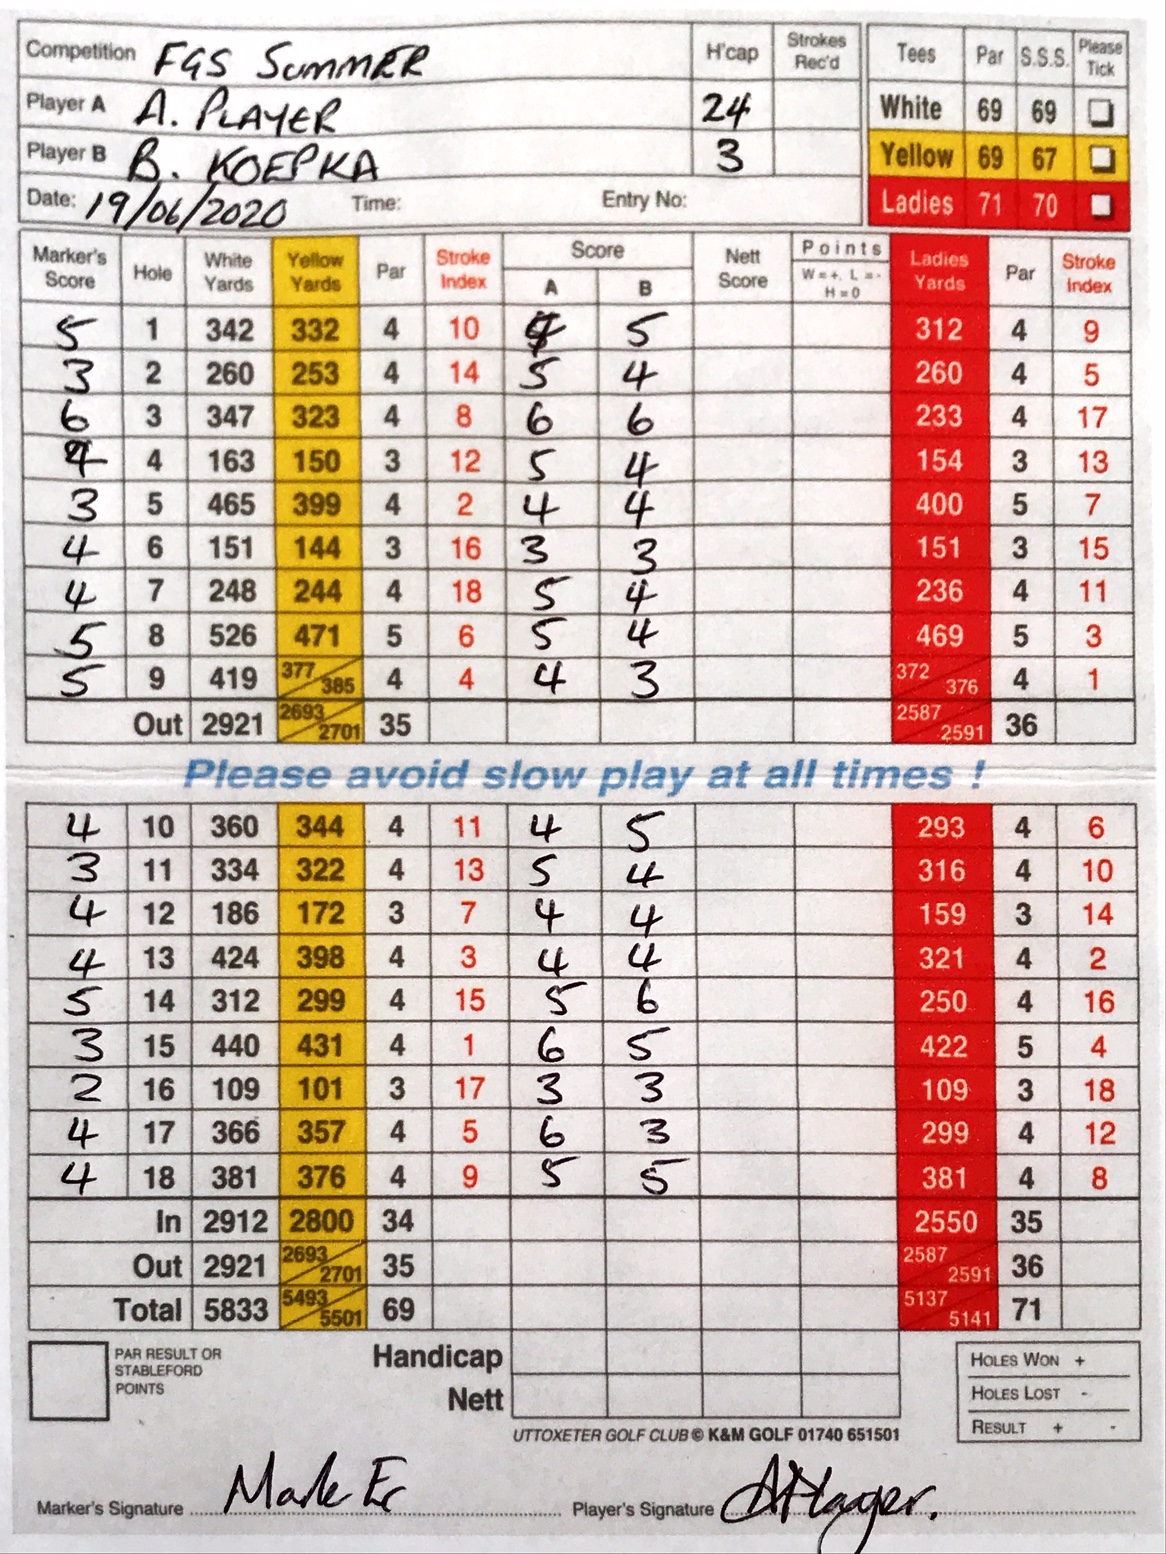 Competition FGS SUMMER H'cap Strokes Rec'd Tees Par S.S.S. Please Tick
Player A A. PLAYER 24 White 69 69
Player B B. KOEPKA 3 Yellow 69 67
Date: 19/06/2020 Time: Entry No: Ladies 71 70
Marker's Score Hole White Yards Yellow Yards Par Stroke Index Score A B Nett Score Points W=+, L=- H=0 Ladies Yards Par Stroke Index
5 1 342 332 4 10 5 312 4 9
3 2 260 253 4 14 5 4 260 4 5
6 3 347 323 4 8 6 6 233 4 17
4 163 150 3 12 5 4 154 3 13
3 5 465 399 4 2 4 4 400 5 7
4 6 151 144 3 16 3 3 151 3 15
4 7 248 244 4 18 5 4 236 4 11
5 8 526 471 5 6 5 4 469 5 3
5 9 419 377/385 4 4 4 3 372 376 4 1
Out 2921 2693/2701 35 2587/2591 36
Please avoid slow play at all times !
4 10 360 344 4 11 4 5 293 4 6
3 11 334 322 4 13 5 4 316 4 10
4 12 186 172 3 7 4 4 159 3 14
4 13 424 398 4 3 4 4 321 4 2
5 14 312 299 4 15 5 6 250 4 16
3 15 440 431 4 1 6 5 422 5 4
2 16 109 101 3 17 3 3 109 3 18
4 17 366 357 4 5 6 3 299 4 12
4 18 381 376 4 9 5 5 381 4 8
In 2912 2800 34 2550 35
Out 2921 2693/2701 35 2587/2591 36
Total 5833 5493/5501 69 5137/5141 71
PAR RESULT OR STABLEFORD POINTS
Handicap
Nett
HOLES WON +
HOLES LOST -
RESULT + -
UTTOXETER GOLF CLUB © K&M GOLF 01740 651501
Marker's Signature Mark Er Player's Signature APlayer.